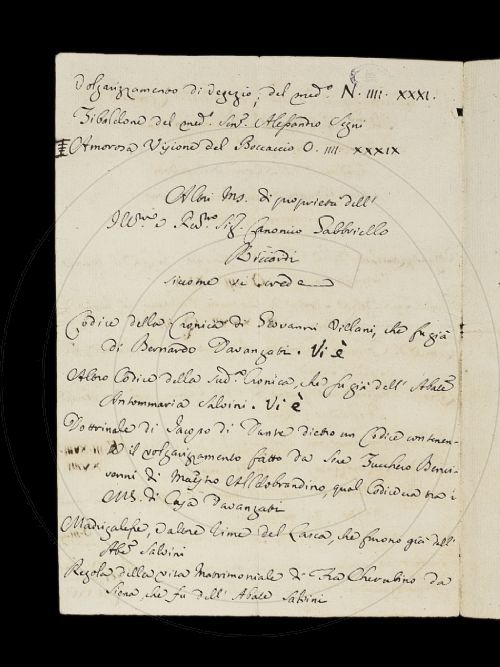 Volgarizzamento di Vegezio, del med.º N. IIII. XXXI.
Zibaldone del med.º Sen.r Alesandro Segni
Amorosa Visione del Boccaccio O. IIII XXXIX
Altri Ms. di proprietà dell'
Ill.mo e Rev.mo Sig. Canonico Gabbriello
Riccardi
siccome si crede
Codice della Cronica di Giovanni Villani, che fu già
di Bernardo Davanzati. Vi è
Altro Codice della sud.a Cronica, che fu già dell' Abate
Antommaria Salvini. Vi è
Dottrinale di Jacopo di Dante dietro un Codice contenen-
te il volgarizzamento fatto da Sere Zucchero Benci-
venni di Maestro Alldobrandino, qual Codice era tra i
MS. di Casa Davanzati
Madrigalesse, ed altre Rime del Lasca, che furono già dell'
Ab.e Salvini
Regola della vita Matrimoniale di Fra Cherubino da
Siena che fu dell' Abate Salvini